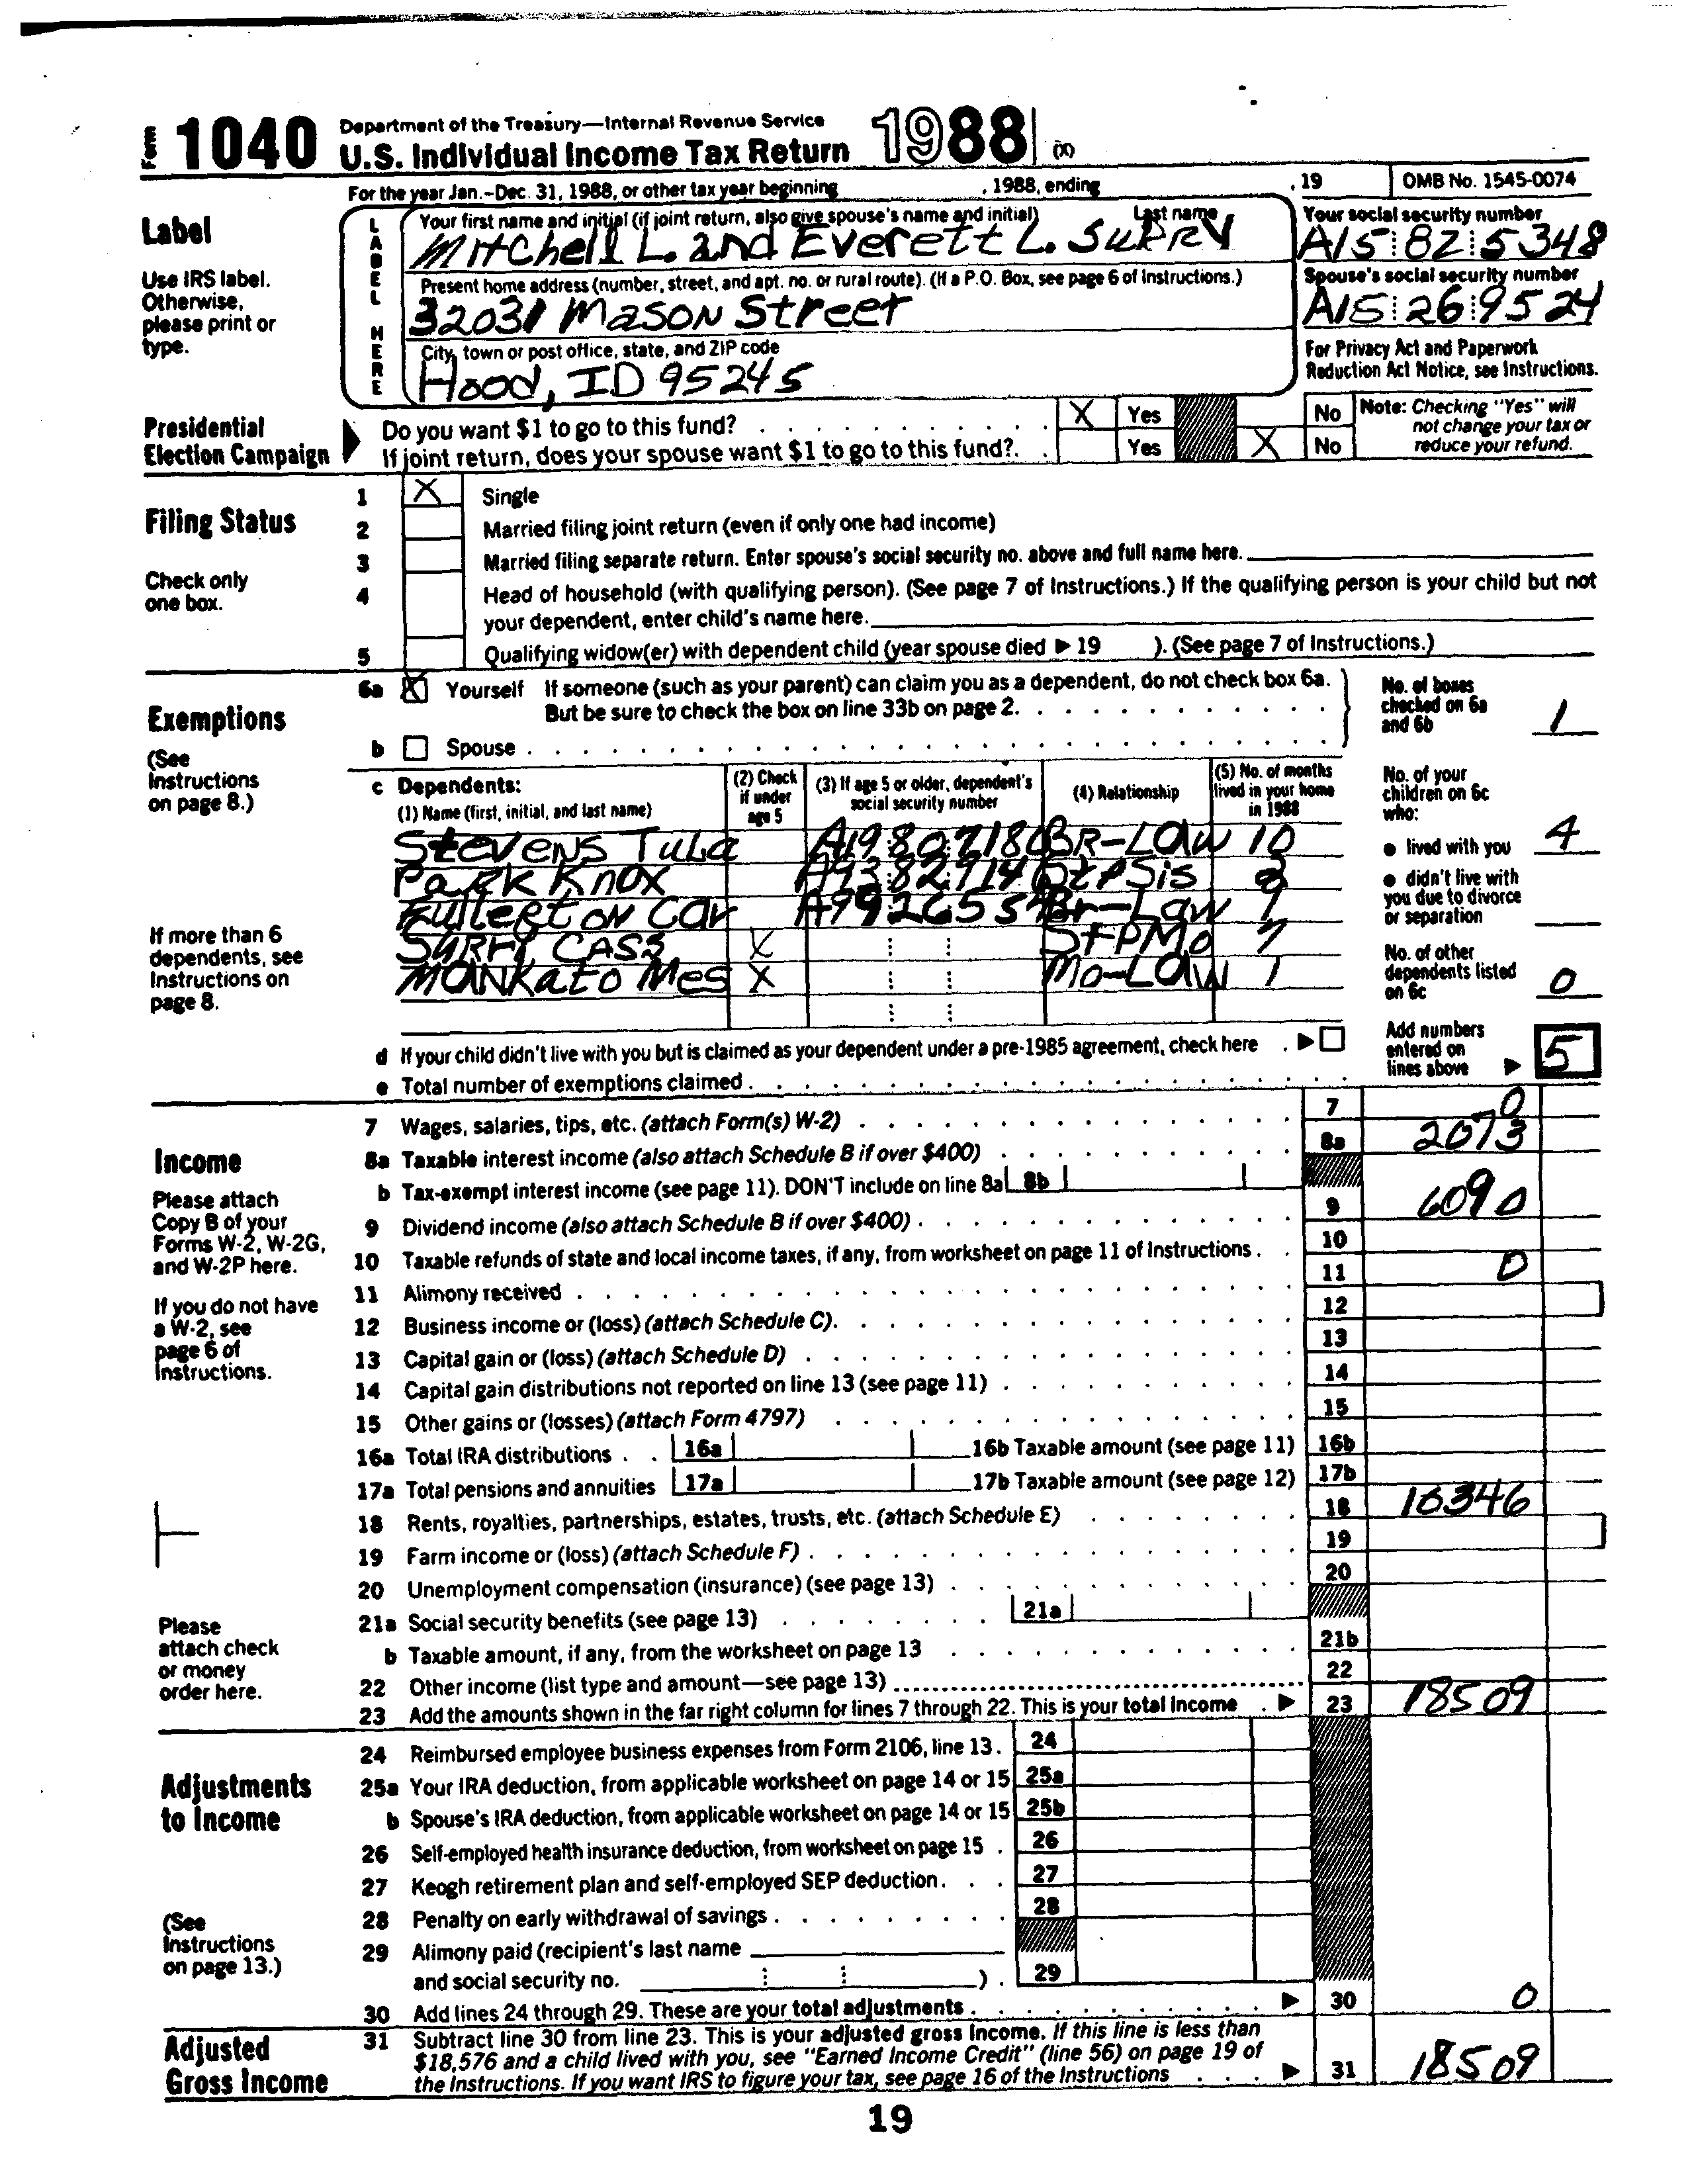 Form 1040 Department of the Treasury—Internal Revenue Service
U.S. Individual Income Tax Return 1988 (X)
For the year Jan.-Dec. 31, 1988, or other tax year beginning , 1988, ending , 19 OMB No. 1545-0074
Label
Use IRS label.
Otherwise,
please print or
type.
LABEL HERE
Your first name and initial (if joint return, also give spouse's name and initial) Last name
Mitchell L. and Everett L. Suppy
Your social security number
A15 82 5348
Present home address (number, street, and apt. no. or rural route). (If a P.O. Box, see page 6 of Instructions.)
32031 Mason Street
Spouse's social security number
A15 26 9524
City, town or post office, state, and ZIP code
Hood, ID 95245
For Privacy Act and Paperwork
Reduction Act Notice, see Instructions.
Presidential
Election Campaign
Do you want $1 to go to this fund? X Yes No
If joint return, does your spouse want $1 to go to this fund?. Yes X No
Note: Checking "Yes" will
not change your tax or
reduce your refund.
Filing Status
Check only
one box.
1 X Single
2 Married filing joint return (even if only one had income)
3 Married filing separate return. Enter spouse's social security no. above and full name here.
4 Head of household (with qualifying person). (See page 7 of Instructions.) If the qualifying person is your child but not
your dependent, enter child's name here.
5 Qualifying widow(er) with dependent child (year spouse died ▶ 19 ). (See page 7 of Instructions.)
Exemptions
(See
Instructions
on page 8.)
6a X Yourself If someone (such as your parent) can claim you as a dependent, do not check box 6a.
But be sure to check the box on line 33b on page 2.
b Spouse
No. of boxes
checked on 6a
and 6b 1
c Dependents:
(1) Name (first, initial, and last name)
(2) Check
if under
age 5
(3) If age 5 or older, dependent's
social security number
(4) Relationship
(5) No. of months
lived in your home
in 1988
Stevens Tula A19807180 BR-LAW 10
Park Knox StPSis
Fullerton Car Br-Law 7
CASS X StPMo 7
Mankato Mes X Mo-LAW 1
If more than 6
dependents, see
Instructions on
page 8.
No. of your
children on 6c
who:
● lived with you 4
● didn't live with
you due to divorce
or separation
No. of other
dependents listed
on 6c 0
Add numbers
entered on
lines above ▶ 5
d If your child didn't live with you but is claimed as your dependent under a pre-1985 agreement, check here . ▶
e Total number of exemptions claimed
Income
Please attach
Copy B of your
Forms W-2, W-2G,
and W-2P here.
If you do not have
a W-2, see
page 6 of
Instructions.
7 Wages, salaries, tips, etc. (attach Form(s) W-2) 7 0
8a Taxable interest income (also attach Schedule B if over $400) 8a 2073
b Tax-exempt interest income (see page 11). DON'T include on line 8a 8b
9 Dividend income (also attach Schedule B if over $400) 9 6090
10 Taxable refunds of state and local income taxes, if any, from worksheet on page 11 of Instructions 10
11 Alimony received 11 0
12 Business income or (loss) (attach Schedule C) 12
13 Capital gain or (loss) (attach Schedule D) 13
14 Capital gain distributions not reported on line 13 (see page 11) 14
15 Other gains or (losses) (attach Form 4797) 15
16a Total IRA distributions 16a 16b Taxable amount (see page 11) 16b
17a Total pensions and annuities 17a 17b Taxable amount (see page 12) 17b
18 Rents, royalties, partnerships, estates, trusts, etc. (attach Schedule E) 18 10346
19 Farm income or (loss) (attach Schedule F) 19
20 Unemployment compensation (insurance) (see page 13) 20
21a Social security benefits (see page 13) 21a
b Taxable amount, if any, from the worksheet on page 13 21b
22 Other income (list type and amount—see page 13) 22
23 Add the amounts shown in the far right column for lines 7 through 22. This is your total income ▶ 23 18509
Please
attach check
or money
order here.
Adjustments
to Income
(See
Instructions
on page 13.)
24 Reimbursed employee business expenses from Form 2106, line 13. 24
25a Your IRA deduction, from applicable worksheet on page 14 or 15 25a
b Spouse's IRA deduction, from applicable worksheet on page 14 or 15 25b
26 Self-employed health insurance deduction, from worksheet on page 15 26
27 Keogh retirement plan and self-employed SEP deduction 27
28 Penalty on early withdrawal of savings 28
29 Alimony paid (recipient's last name
and social security no. ) 29
30 Add lines 24 through 29. These are your total adjustments ▶ 30 0
Adjusted
Gross Income
31 Subtract line 30 from line 23. This is your adjusted gross income. If this line is less than
$18,576 and a child lived with you, see "Earned Income Credit" (line 56) on page 19 of
the Instructions. If you want IRS to figure your tax, see page 16 of the Instructions ▶ 31 18509
19